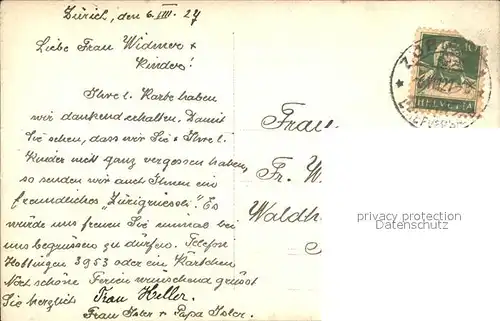 Zürich, den 6. III. 27
Liebe Frau Widmer &
Kinder!
Ihre l. Karte haben
wir dankend erhalten. Damit
Sie sehen, dass wir Sie & Ihre l.
Kinder nicht ganz vergessen haben,
so senden wir auch Ihnen ein
freundliches "Zürigruessli". Es
würde uns freuen Sie einmal bei
uns begrüssen zu dürfen. Telefon
Hottingen 3953 oder ein Kärtchen
Noch schöne Ferien wünschend grüsst
Sie herzlich Frau Heller.
Frau Isler & Papa Isler.
HELVETIA
Frau
Fr. W
Waldh
privacy protection
Datenschutz